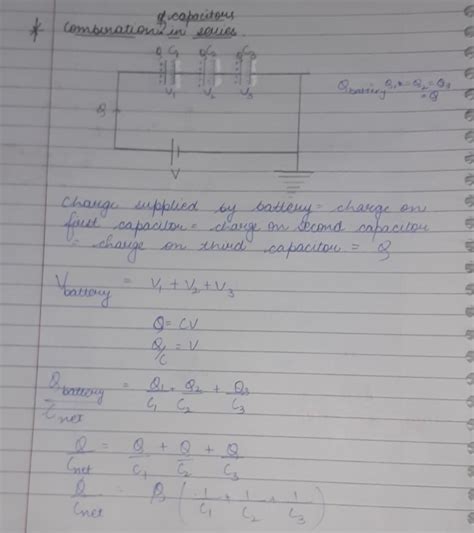 of capacitors
* Combination in series.
Q C1 Q C2 Q C3
V1 V2 V3
Q battery = Q1 = Q2 = Q3
= Q
Q
V
Charge supplied by battery = charge on
first capacitor = charge on second capacitor
= charge on third capacitor = Q
V battery = V1 + V2 + V3
Q = CV
Q/C = V
Q battery / C net = Q1/C1 + Q2/C2 + Q3/C3
Q/C net = Q/C1 + Q/C2 + Q/C3
Q/C net = Q ( 1/C1 + 1/C2 + 1/C3 )